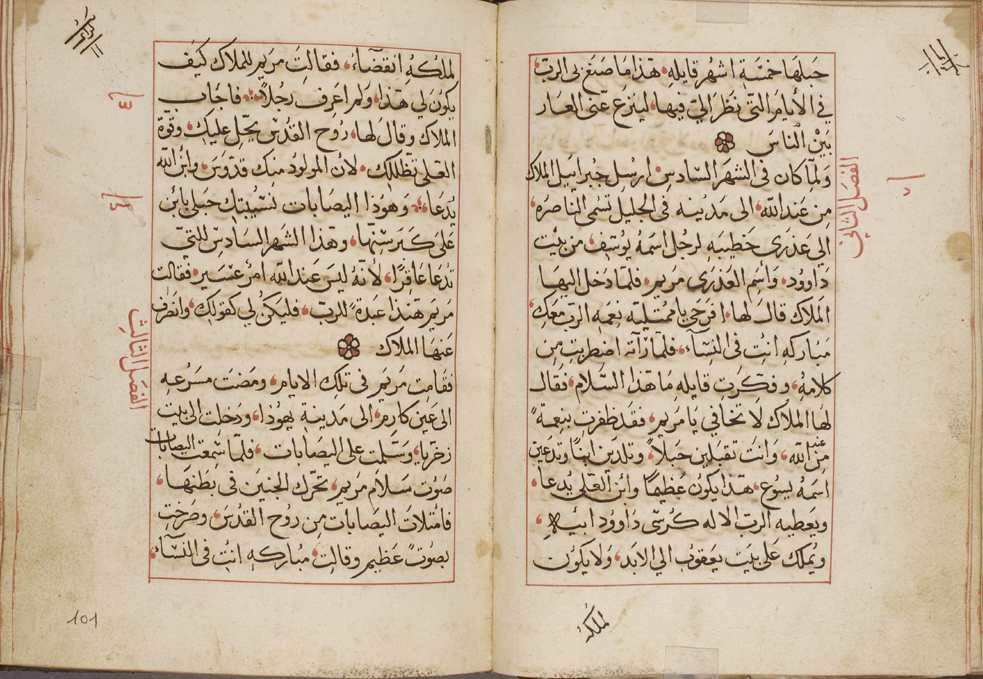 حبلها خمسة اشهر قايله هذا ما صنع بى الرب
في الأيام التي نظر اليّ فيها لينزع عنى العار
بين الناس
ولما كان فى الشهر السادس ارسل جبراييل الملاك
من عند الله الى مدينه فى الجليل تسمى الناصره
الي عذرى خطيبه لرجل اسمه يوسف من بيت
داوود واسم العذرى مريم فلما دخل اليها
الملاك قال لها افرحي يا ممتليه نعمه الرب معك
مباركه انت فى النسآء فلما رأته اضطربت من
كلامه وفكرت قايله ما هذا السلام فقال
لها الملاك لا تخافي يا مريم فقد ظفرت بنعمة
من عند الله وانت تقبلين حبلاً وتلدين ابناً وتدعين
اسمه يسوع هذا يكون عظيماً وابن العلي يدعا
ويعطيه الرب الاله كرسى داوود ابيه
ويملك على بيت يعقوب الي الابد ولا يكون
لملكه
الفصل الثاني
لملكه انقضآء فقالت مريم للملاك كيف
يكون لي هذا ولم اعرف رجلاً فاجاب
الملاك وقال لها روح القدس يحل عليك وقوة
العلى تظللك لأن المولود منك قدوس وابن الله
يدعا وهوذا اليصابات نسيبتك حبلى بابن
على كبر سنها وهذا الشهر السادس للتي
تدعا عاقرًا لأنه ليس عند الله امر عسير فقالت
مريم هنذا عبدة للرب فليكن لي كقولك وانصرف
عنها الملاك
فقامت مريم فى تلك الايام ومضت مسرعه
الى عين كارم الى مدينة يهوذا ودخلت الى بيت
زخريا وسلمت على اليصابات فلما سمعت اليصابات
صوت سلام مريم تحرك الجنين فى بطنها
فامتلات اليصابات من روح القدس وصرخت
بصوت عظيم وقالت مباركه انت فى النسآء
الفصل الثالث
101